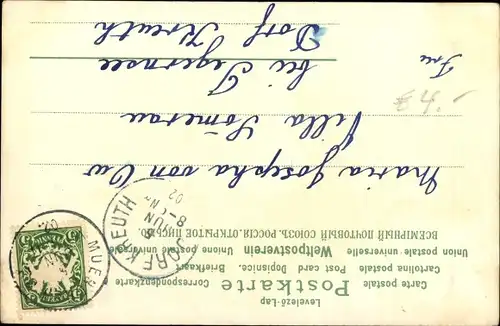 Levelező-Lap
Postkarte
Carte postale Correspondenzkarte
Cartolina postale Post card Dopisnice. Briefkaart
Union postale universelle Weltpostverein Unione postale universale
ВСЕМІРНЫЙ ПОЧТОВЫЙ СОЮЗЪ. РОССІЯ. ОТКРЫТОЕ ПИСЬМО.
DORF KREUTH
8 JUN
8-
02
MUEN
BAYERN
Frau
Maria Josepha von Ow
Villa Sömerau
bei Tegernsee
Dorf Kreuth